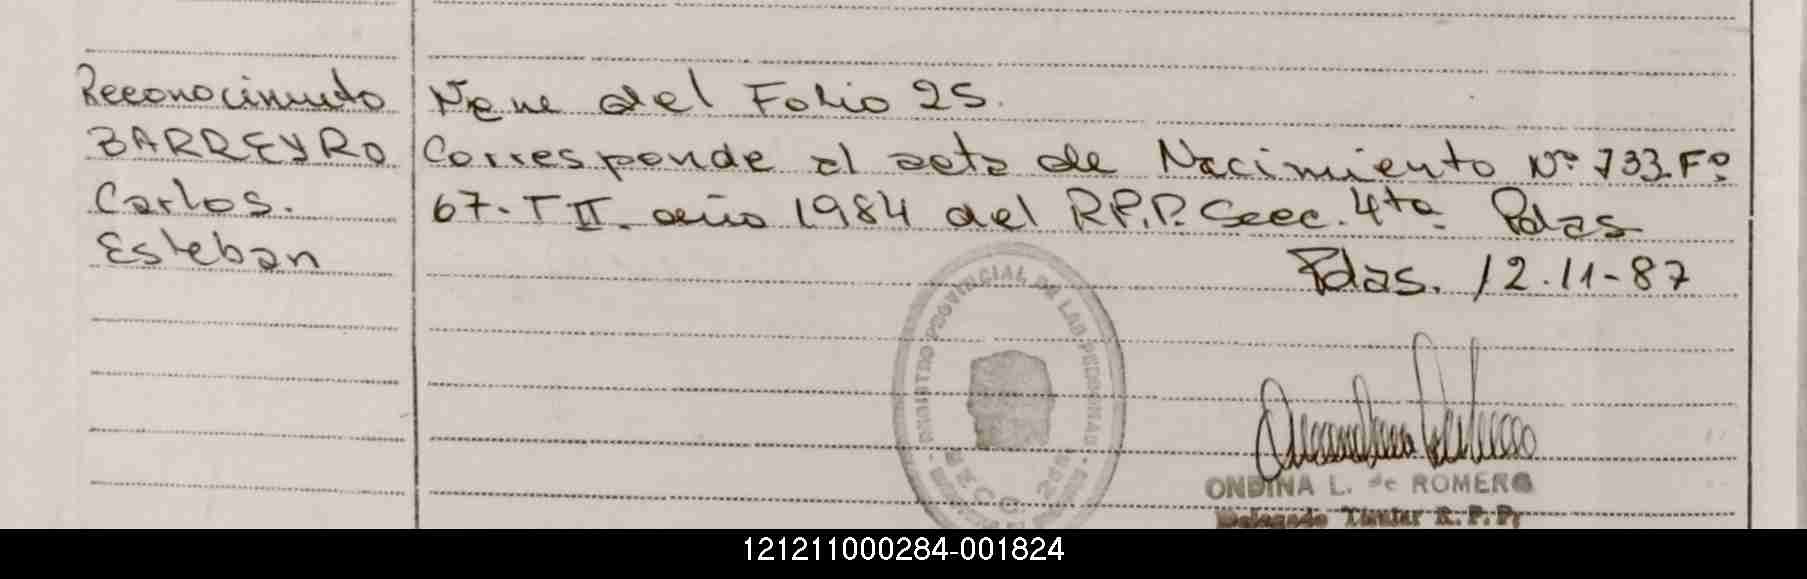 Reconocimiento
BARREYRO
Carlos.
Esteban
Viene del Folio 25.
Corresponde al acta de Nacimiento Nº 733 Fº
67- T II. año 1984 del R.P.P. Secc. 4ta Pdas
Pdas. 12-11-87
REGISTRO PROVINCIAL DE LAS PERSONAS
SECC
ONDINA L. de ROMERO
Delegado Titular R.P.P.
121211000284-001824